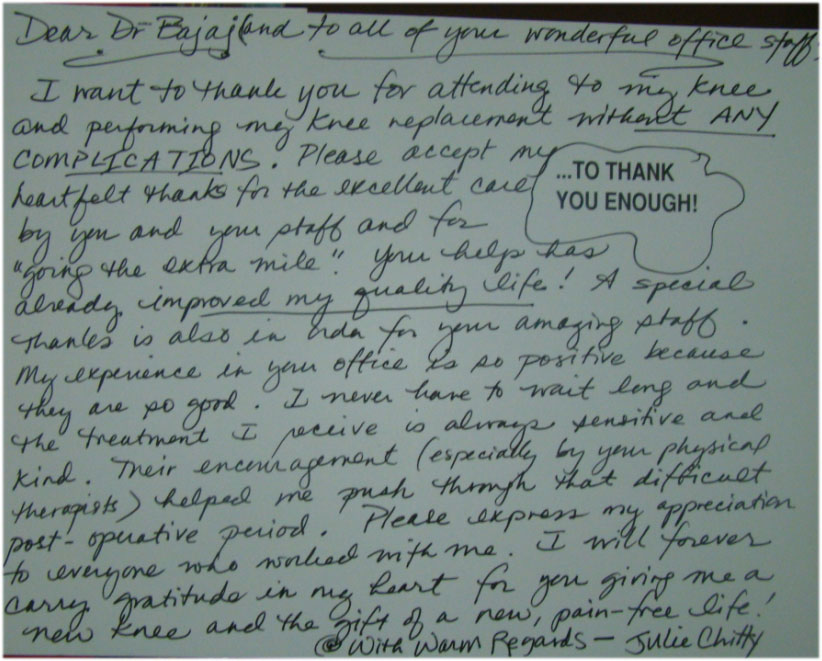 Dear Dr Bajaj and to all of your wonderful office staff,
I want to thank you for attending to my knee
and performing my knee replacement without ANY
COMPLICATIONS. Please accept my
heartfelt thanks for the excellent care
...TO THANK
YOU ENOUGH!
by you and your staff and for
"going the extra mile". Your help has
already improved my quality life! A special
thanks is also in order for your amazing staff.
My experience in your office is so positive because
they are so good. I never have to wait long and
the treatment I receive is always sensitive and
kind. Their encouragement (especially by your physical
therapists) helped me push through that difficult
post-operative period. Please express my appreciation
to everyone who worked with me. I will forever
carry gratitude in my heart for you giving me a
new knee and the gift of a new, pain-free life!
With Warm Regards - Julie Chitty